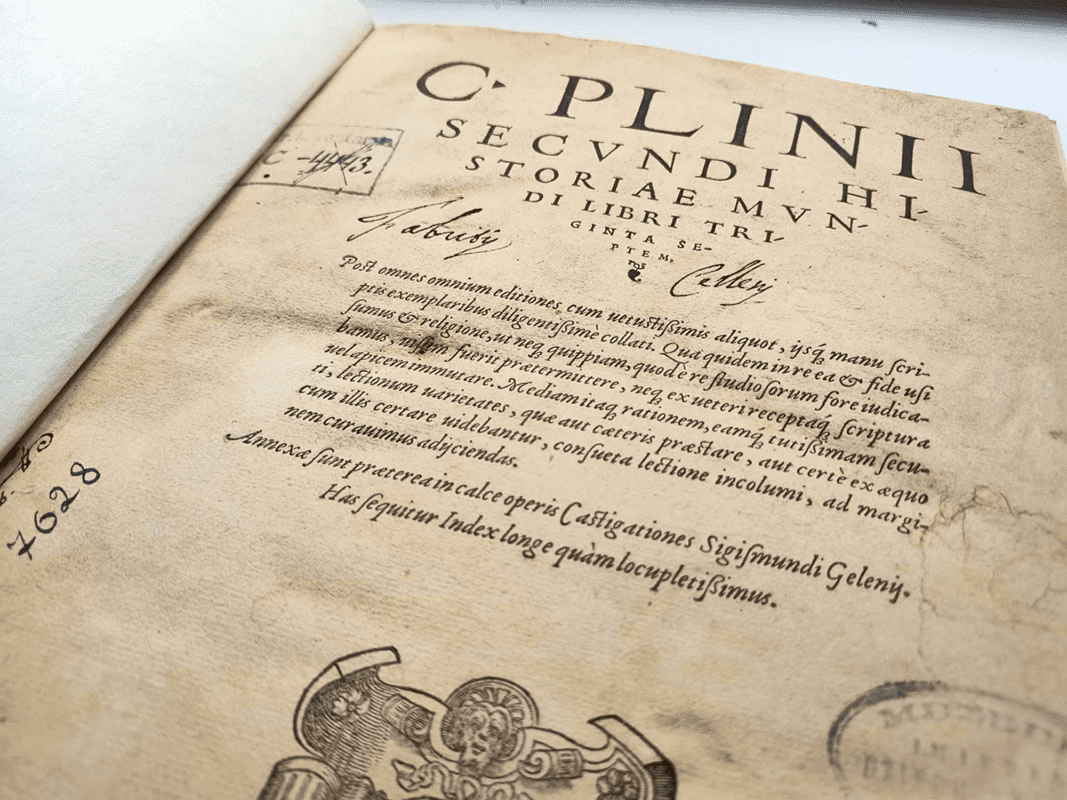 C. PLINII
SECVNDI HI-
STORIAE MVN-
DI LIBRI TRI-
GINTA SE-
PTEM,
C -4443.
Fabricij
Post omnes omnium editiones, cum uetustißimis aliquot, ijsq́; manu scri-
ptis exemplaribus diligentißimè collati. Qua quidem in re ea & fide usi
sumus & religione, ut neq; quippiam, quod è re studiosorum fore iudica-
bamus, uissem fuerit prætermittere, neq; ex ueteri receptaq́; scriptura
uel apicem immutare. Mediam itaq; rationem, eamq́; tutißimam secu-
ti, lectionum uarietates, quæ aut cæteris præstare, aut certè ex æquo
cum illis certare uidebantur, consueta lectione incolumi, ad margi-
nem curauimus adijciendas.
Annexæ sunt præterea in calce operis Castigationes Sigismundi Gelenij.
Has sequitur Index longe quàm locupletißimus.
7628